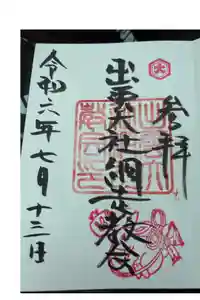 奉拝
出雲大社網走教会
令和六年七月十三日